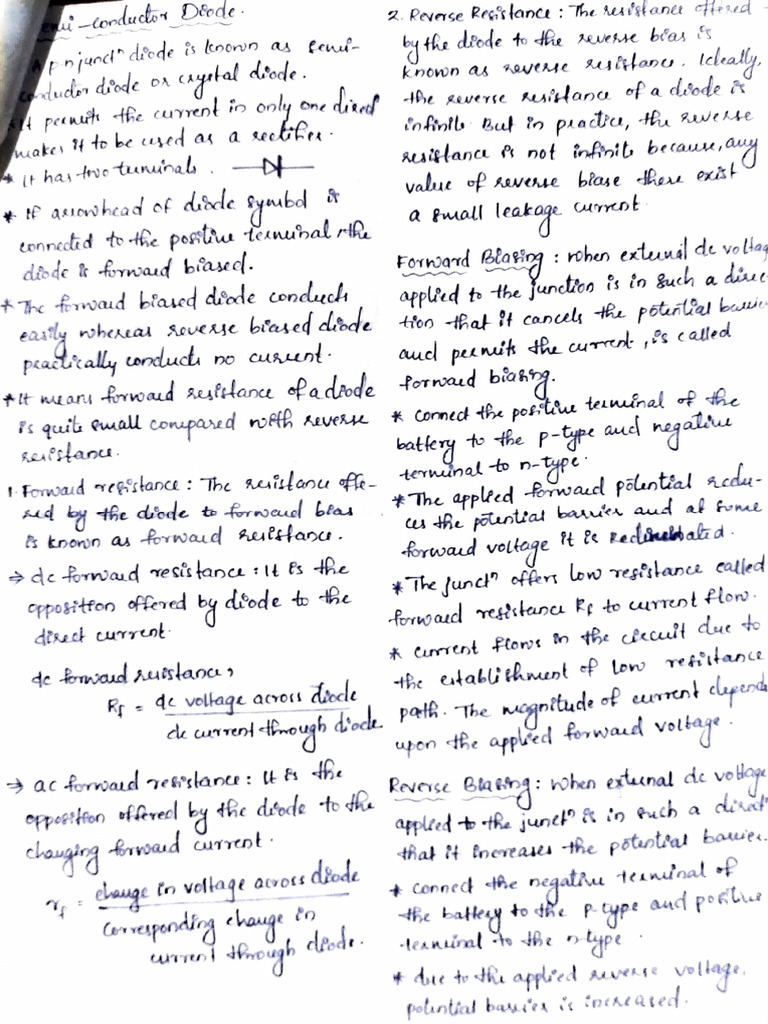 emi-conductor Diode.
A p-n junctⁿ diode is known as semi-
conductor diode or crystal diode.
*It permits the current in only one direct
makes it to be used as a rectifier.
* It has two terminals.
* If arrowhead of diode symbol is
connected to the positive terminal, the
diode is forward biased.
* The forward biased diode conducts
easily whereas reverse biased diode
practically conducts no current.
* It means forward resistance of a diode
is quite small compared with reverse
resistance.
1. Forward resistance : The resistance offe-
red by the diode to forward bias
is known as forward resistance.
→ dc forward resistance : It is the
opposition offered by diode to the
direct current.
dc forward resistance,
Rf = dc voltage across diode
dc current through diode
→ ac forward resistance : It is the
opposition offered by the diode to the
changing forward current.
rf = change in voltage across diode
corresponding change in
current through diode.
2. Reverse Resistance : The resistance offered
by the diode to the reverse bias is
known as reverse resistance. Ideally,
the reverse resistance of a diode is
infinite. But in practice, the reverse
resistance is not infinite because, any
value of reverse biase there exist
a small leakage current.
Forward Biasing : when external dc voltag
applied to the junction is in such a direc-
tion that it cancels the potential barrie
and permits the current, is called
forward biasing.
* connect the positive terminal of the
battery to the p-type and negative
terminal to n-type.
* The applied forward potential redu-
ces the potential barrier and at some
forward voltage it is
* The junctⁿ offers low resistance called
forward resistance Rf to current flow.
* current flows in the circuit due to
the establishment of low resistance
path. The magnitude of current depend
upon the applied forward voltage.
Reverse Biasing : when external dc voltage
applied to the junctⁿ is in such a direct
that it increases the potential barrier.
* connect the negative terminal of
the battery to the p-type and positive
terminal to the n-type.
* due to the applied reverse voltage,
potential barrier is increased.